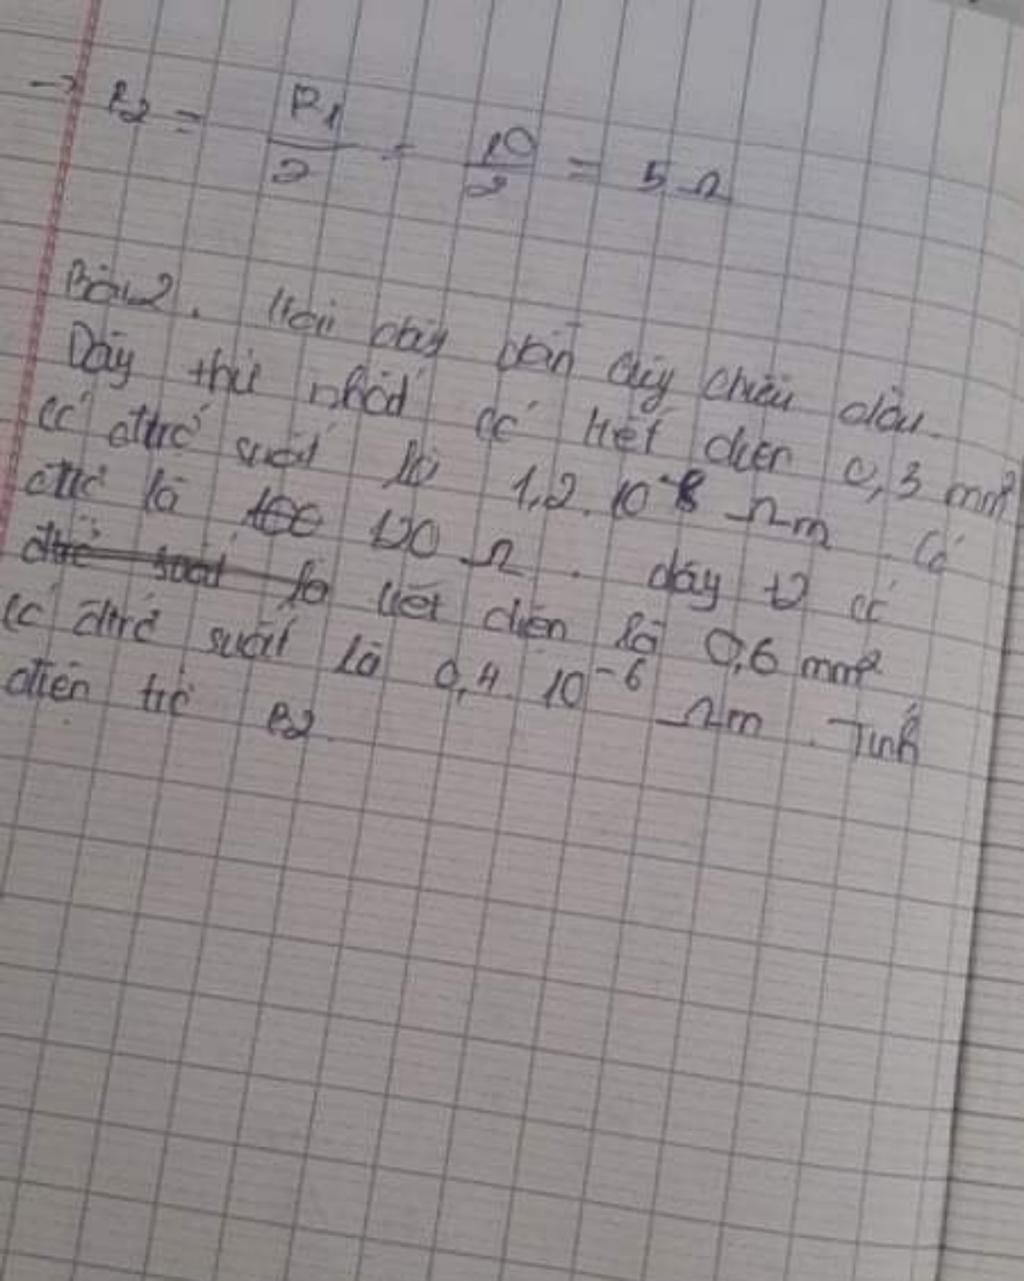 → R2 = R1/2 = 10/2 = 5 Ω
Bài 2. Hai dây dẫn cùng chiều dài.
Dây thứ nhất có tiết diện 0,3 mm²
có đtrở suất là 1,2. 10⁻⁸ Ωm. Có
đtrở là 120 Ω. dây t2 có
đtrở suất là tiết diện là 0,6 mm²
có đtrở suất là 0,4. 10⁻⁶ Ωm. Tính
điện trở R2.